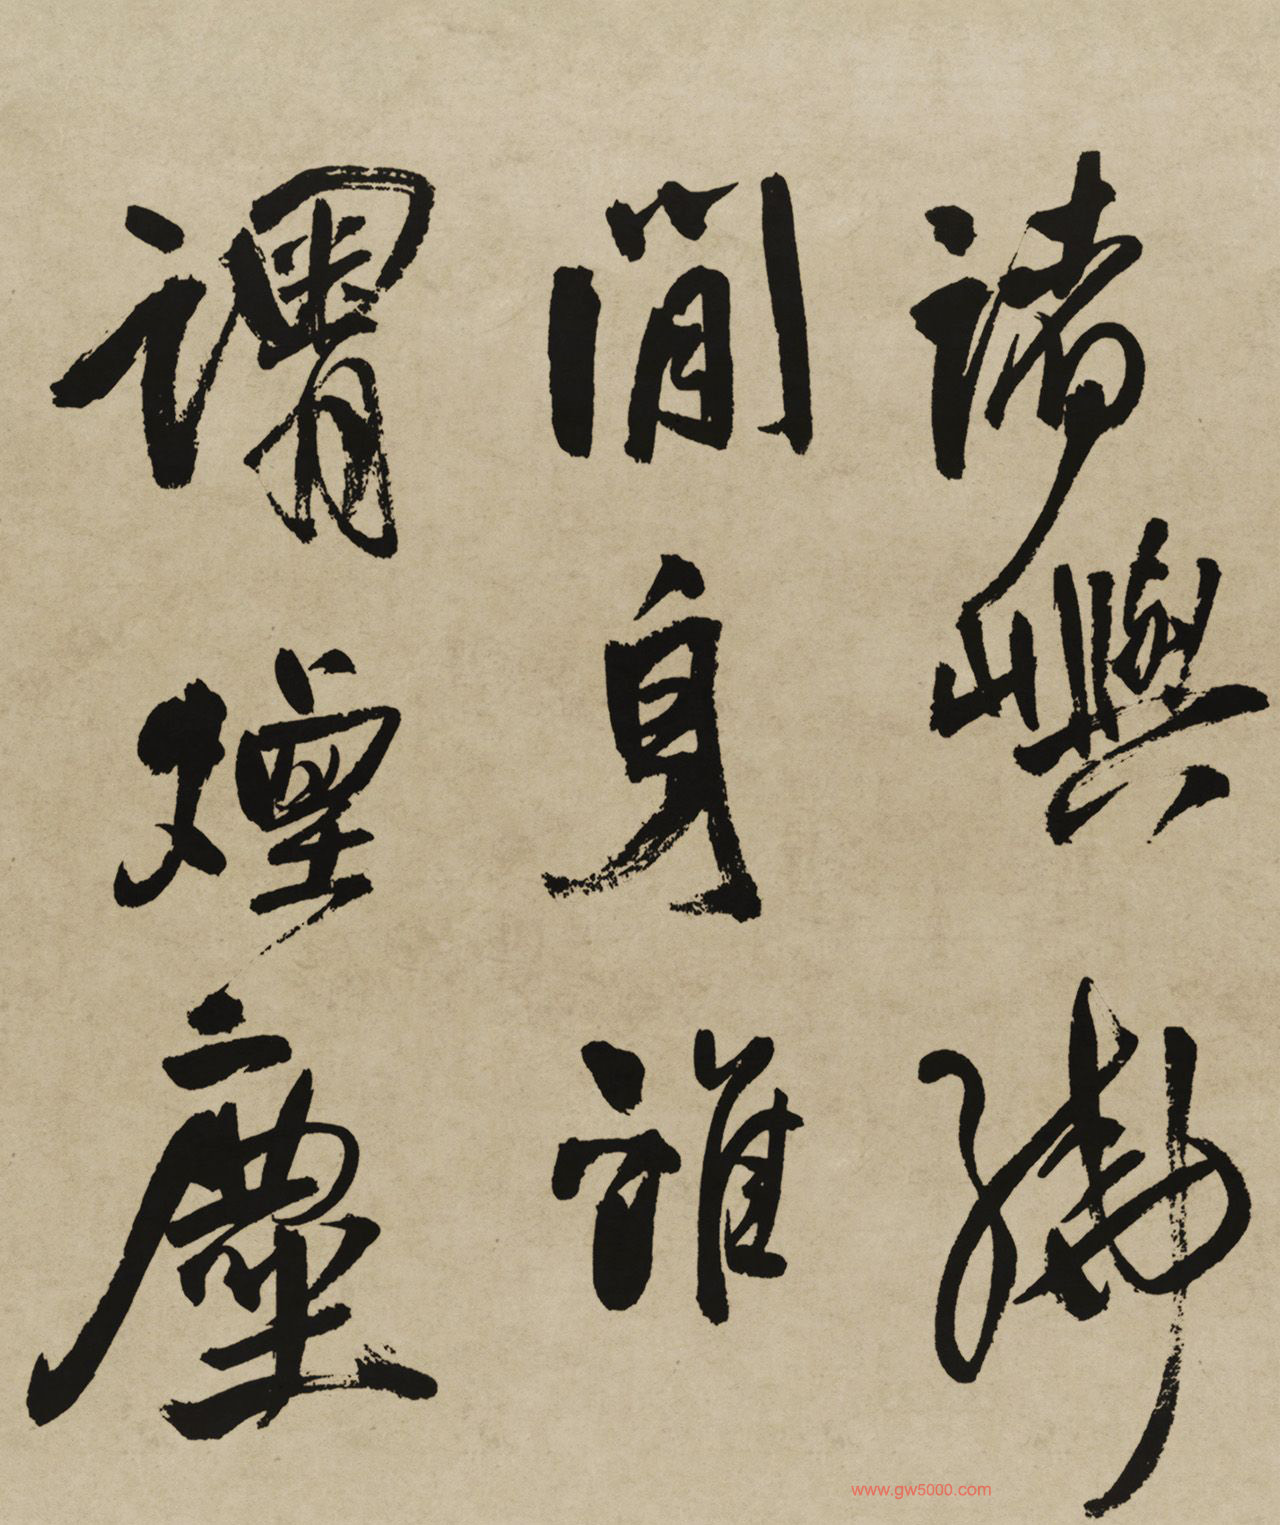 諸嶼
閒身誰
謂煙塵
www.gw5000.com